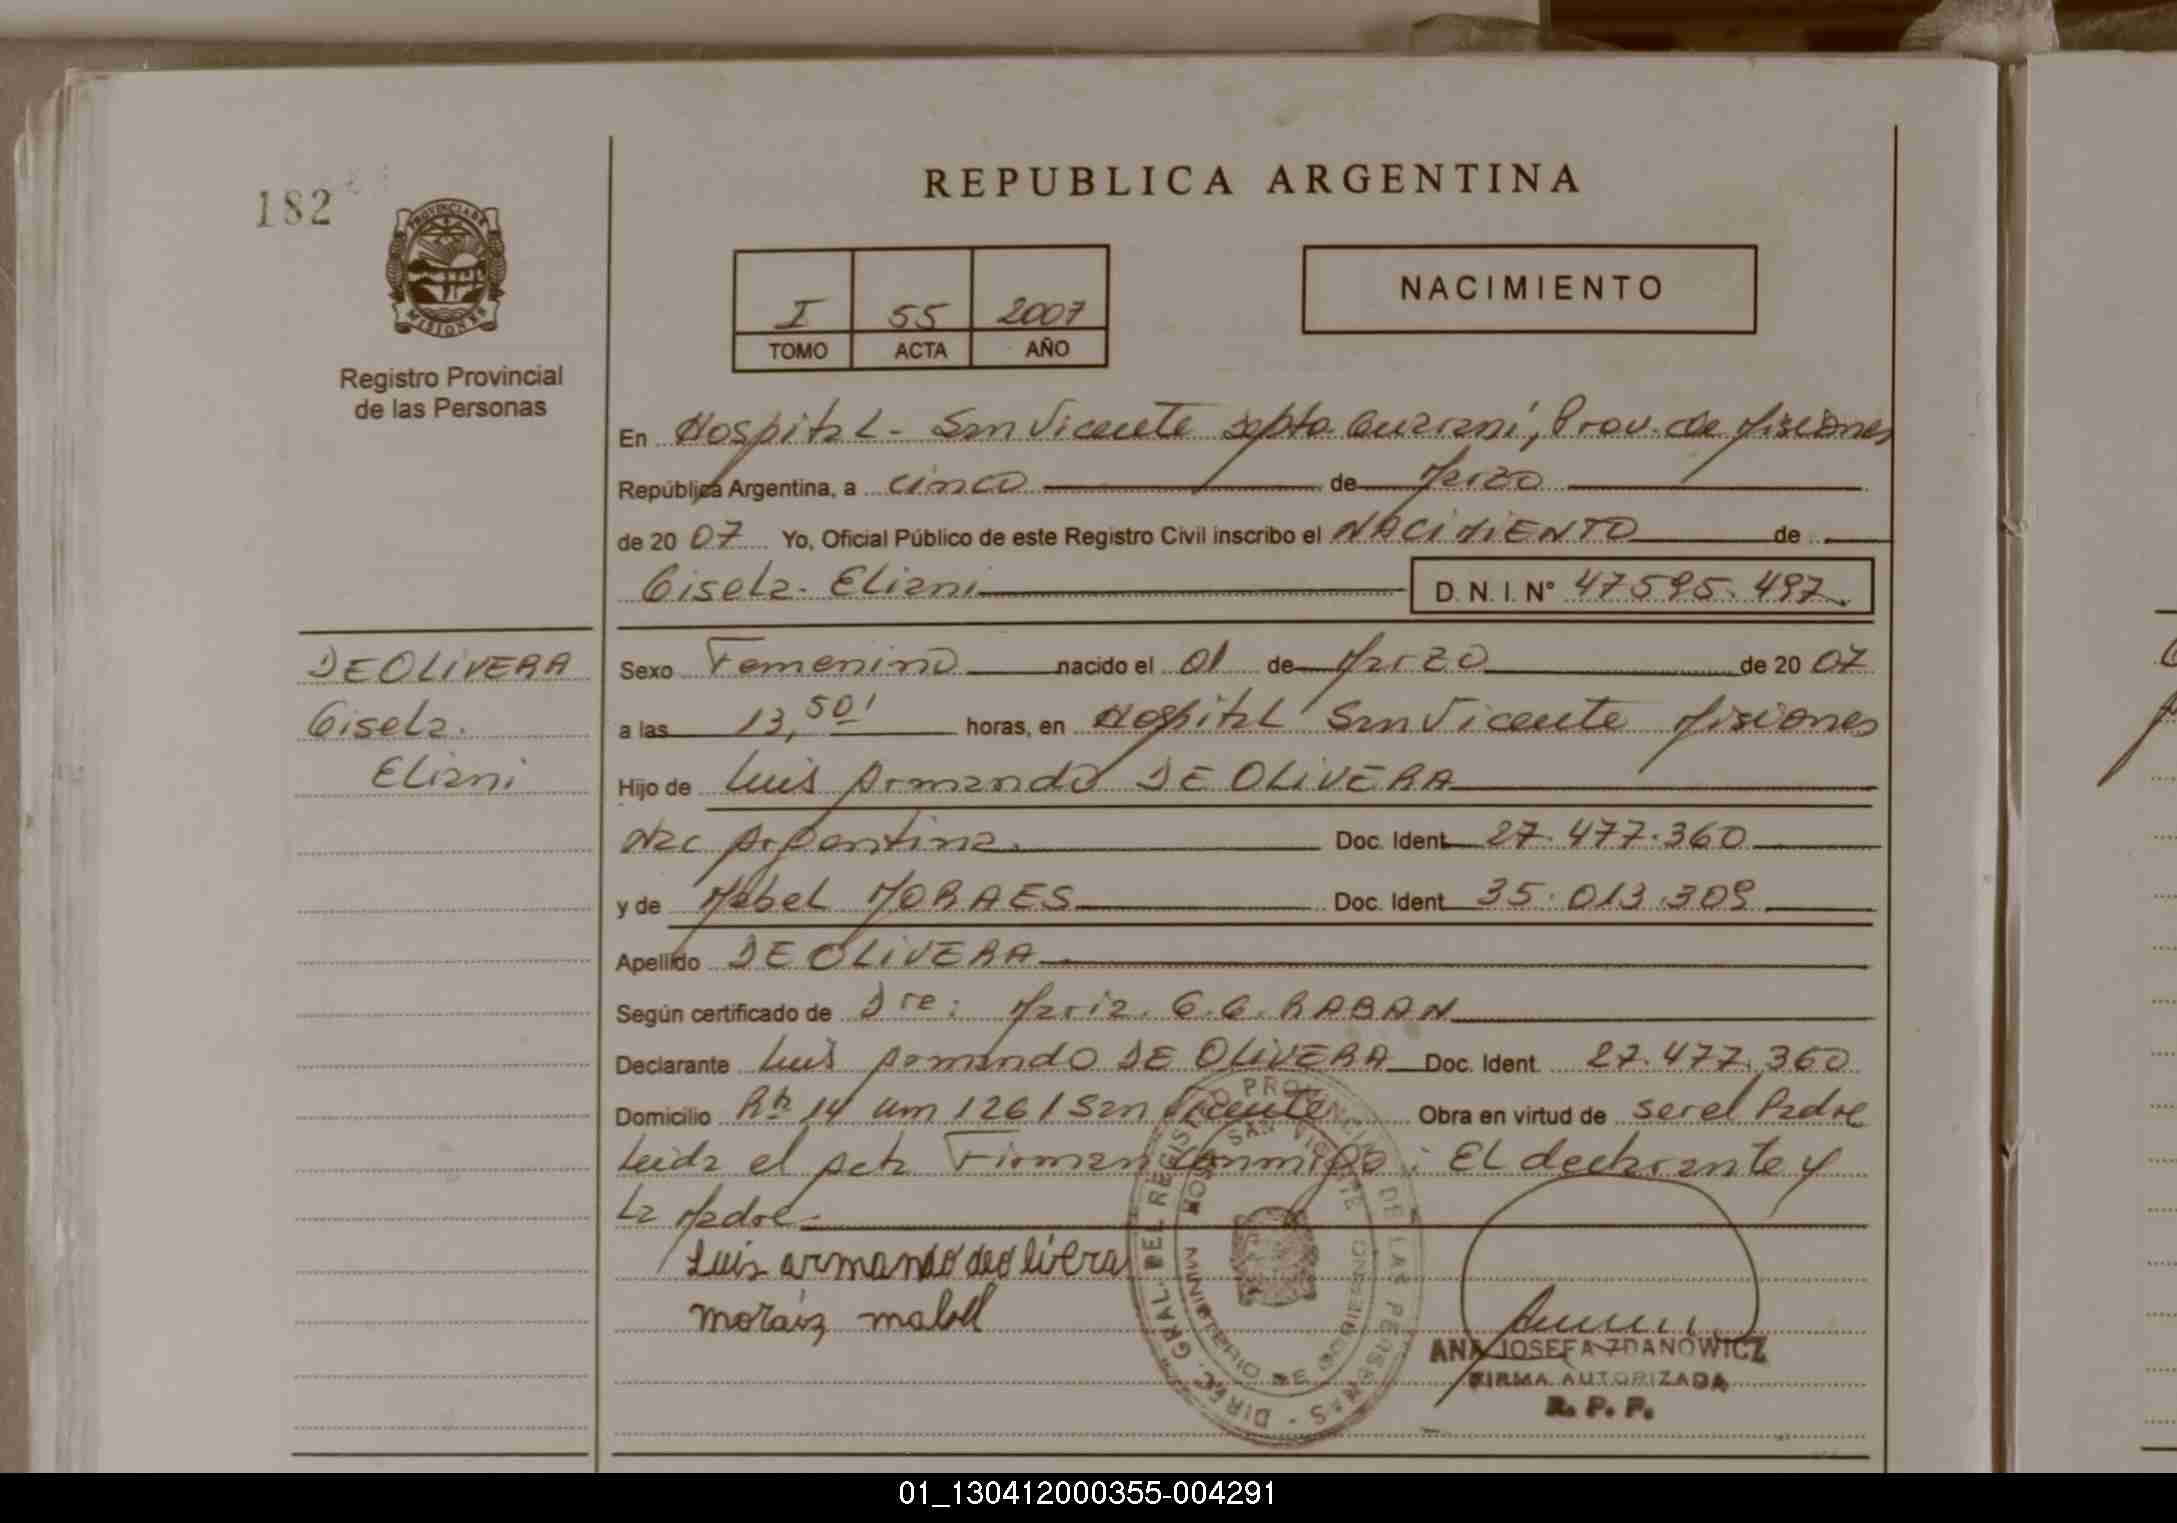 182
PROVINCIA DE
MISIONES
Registro Provincial
de las Personas
REPUBLICA ARGENTINA
I 55 2007
TOMO ACTA AÑO
NACIMIENTO
En Hospital - San Vicente Depto Guarani, Prov. de Misiones
República Argentina, a cinco de Marzo
de 20 07 Yo, Oficial Público de este Registro Civil inscribo el NACIMIENTO de
Gisela. Eliani D. N. I. N° 47595.497.
DEOLIVERA
Gisela.
Eliani
Sexo Femenino nacido el 01 de Marzo de 20 07
a las 13,50' horas, en Hospital San Vicente Misiones
Hijo de Luis Armando DE OLIVERA
Nac Argentina. Doc. Ident. 27.477.360
y de Mabel MORAES Doc. Ident. 35.013.309
Apellido DE OLIVERA
Según certificado de Dra: Maria. G.G. RABAN
Declarante Luis Armando DE OLIVERA Doc. Ident. 27.477.360
Domicilio Rta 14 Km 1261 San Vicente Obra en virtud de ser el Padre
Leida el Acta Firman conmigo: El declarante y
La Madre-
Luis armando deolivera
moraiz mabel
DIREC. GRAL. DEL REGISTRO PROVINCIAL DE LAS PERSONAS
HOSP. SAN VICENTE
ANA JOSEFA ZDANOWICZ
FIRMA AUTORIZADA
R. P. P.
01_130412000355-004291